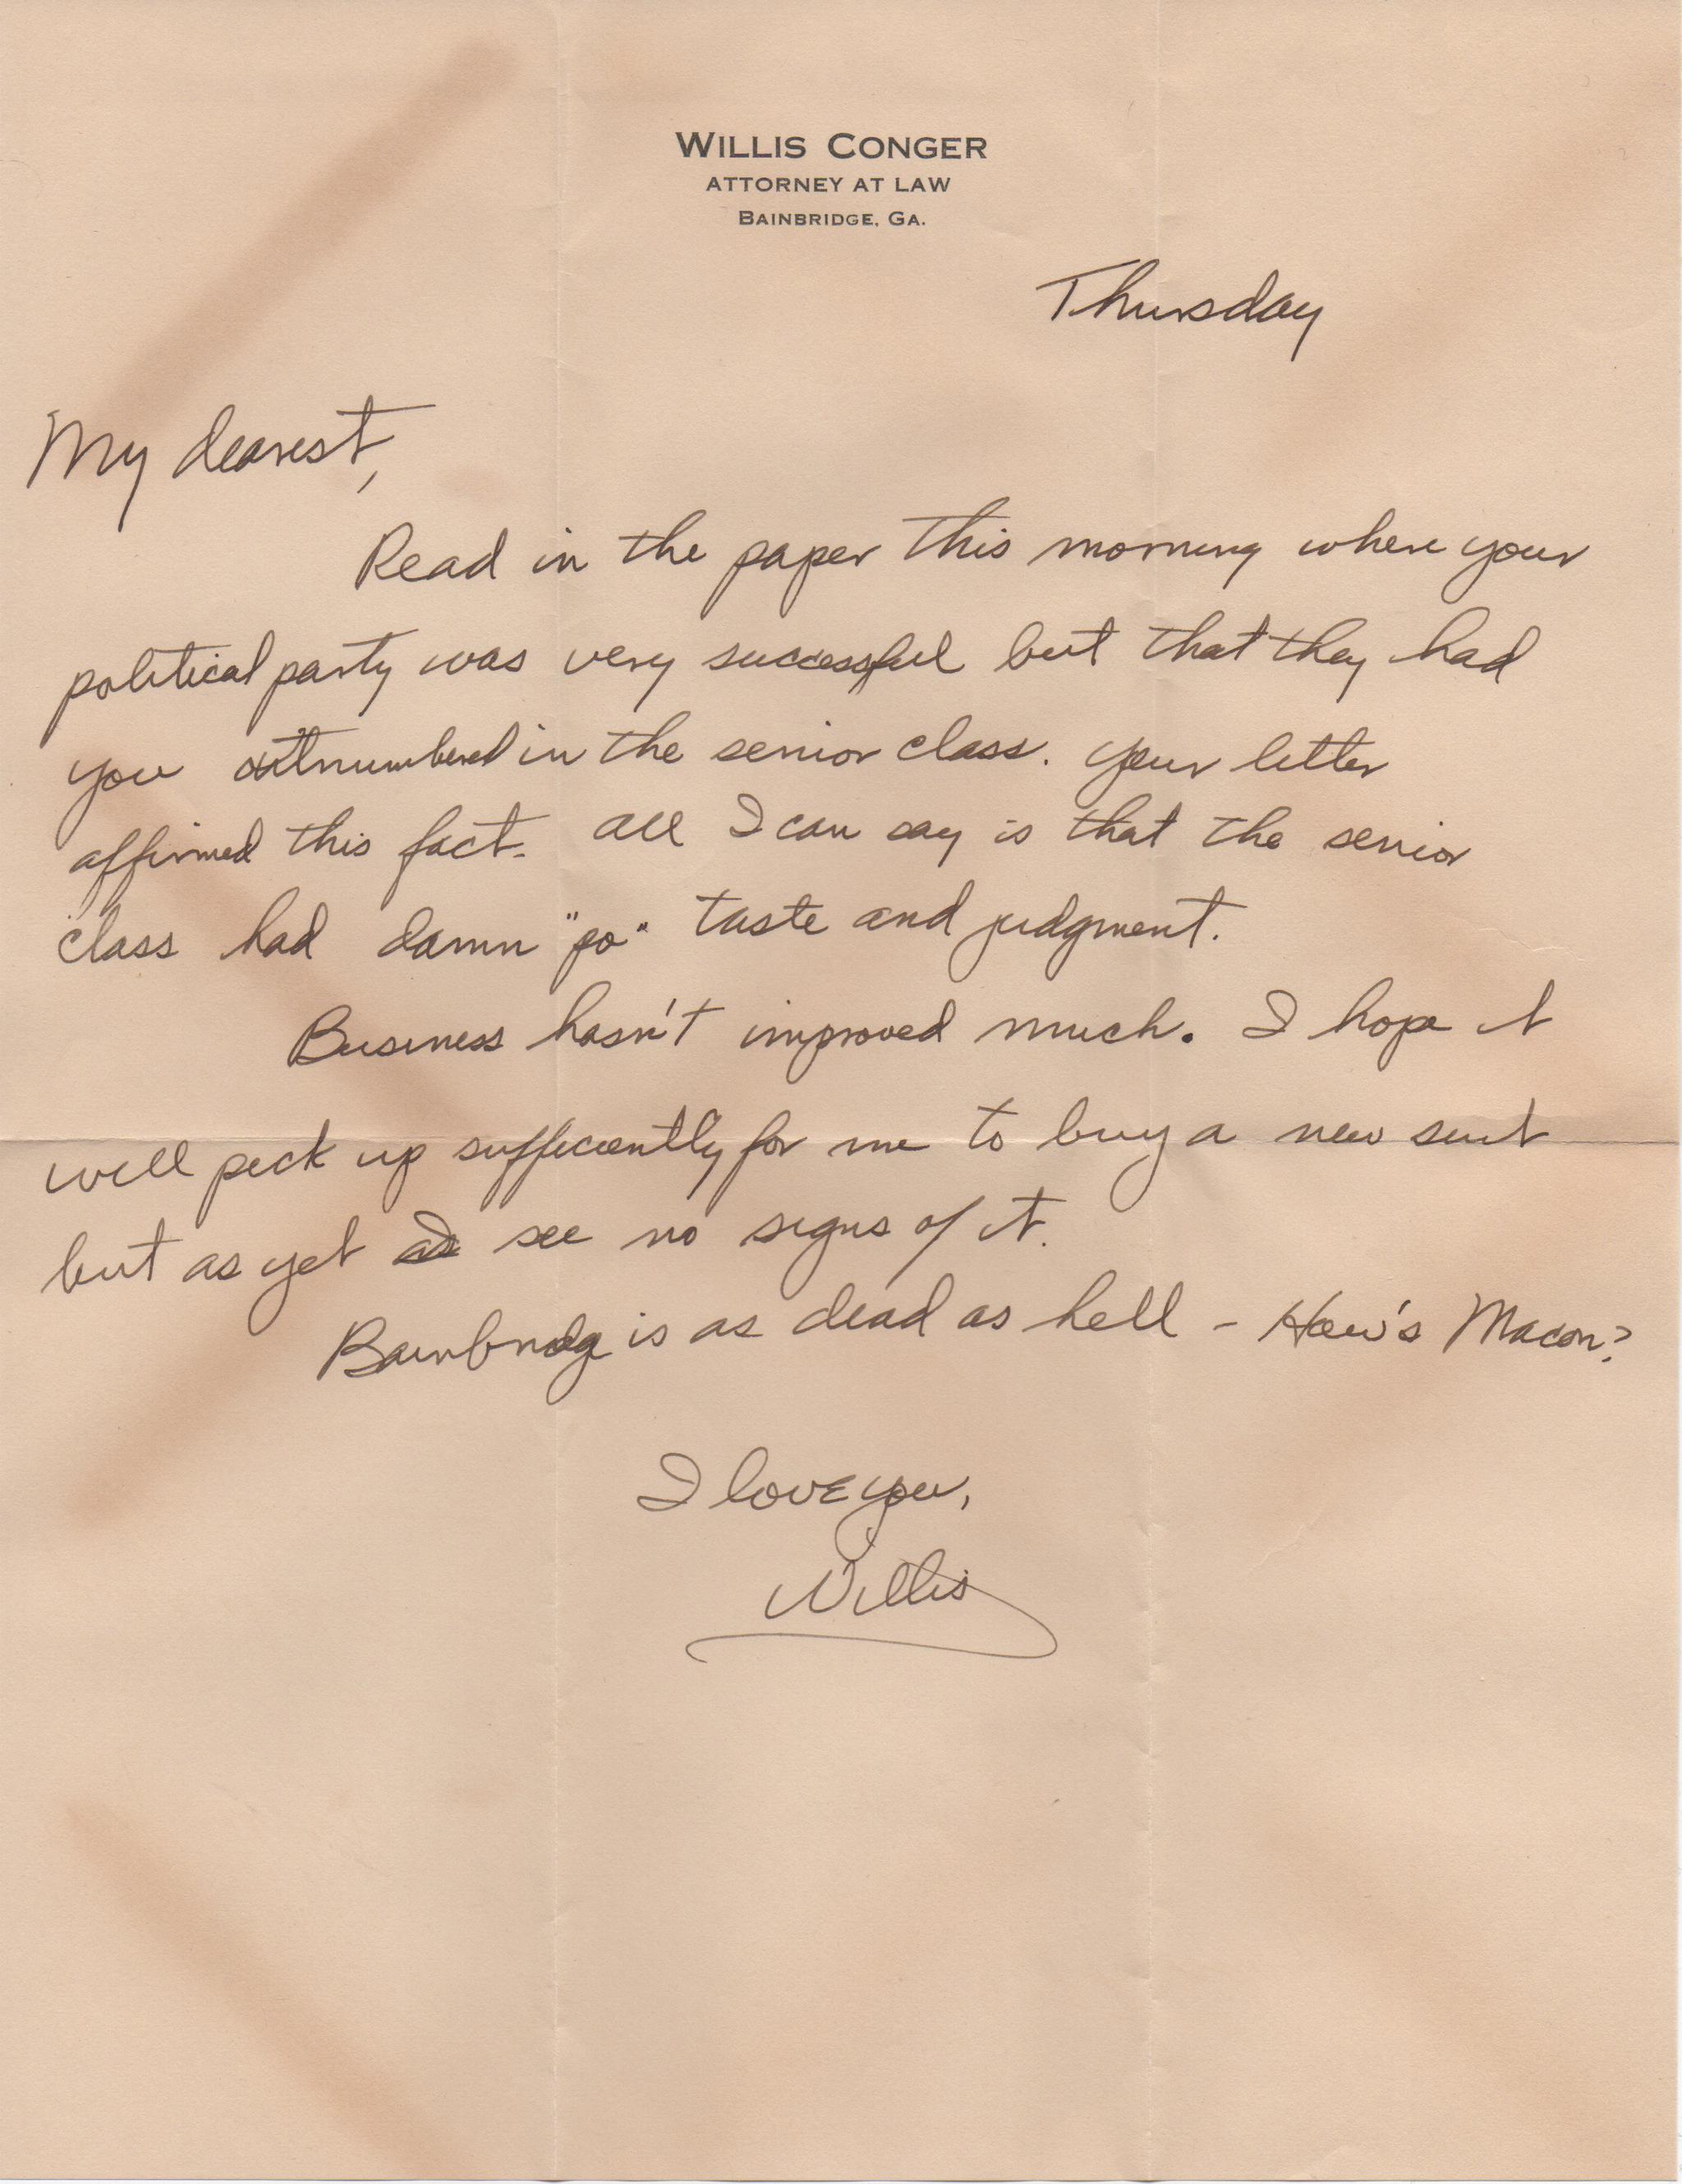 WILLIS CONGER
ATTORNEY AT LAW
BAINBRIDGE, GA.
Thursday
My dearest,
Read in the paper this morning where your
political party was very successful but that they had
you outnumbered in the senior class. Your letter
affirmed this fact. All I can say is that the senior
class had damn "po" taste and judgment.
Business hasn't improved much. I hope it
will pick up sufficiently for me to buy a new suit
but as yet see no signs of it.
Bainbridge is as dead as hell - How's Macon?
I love you,
Willis